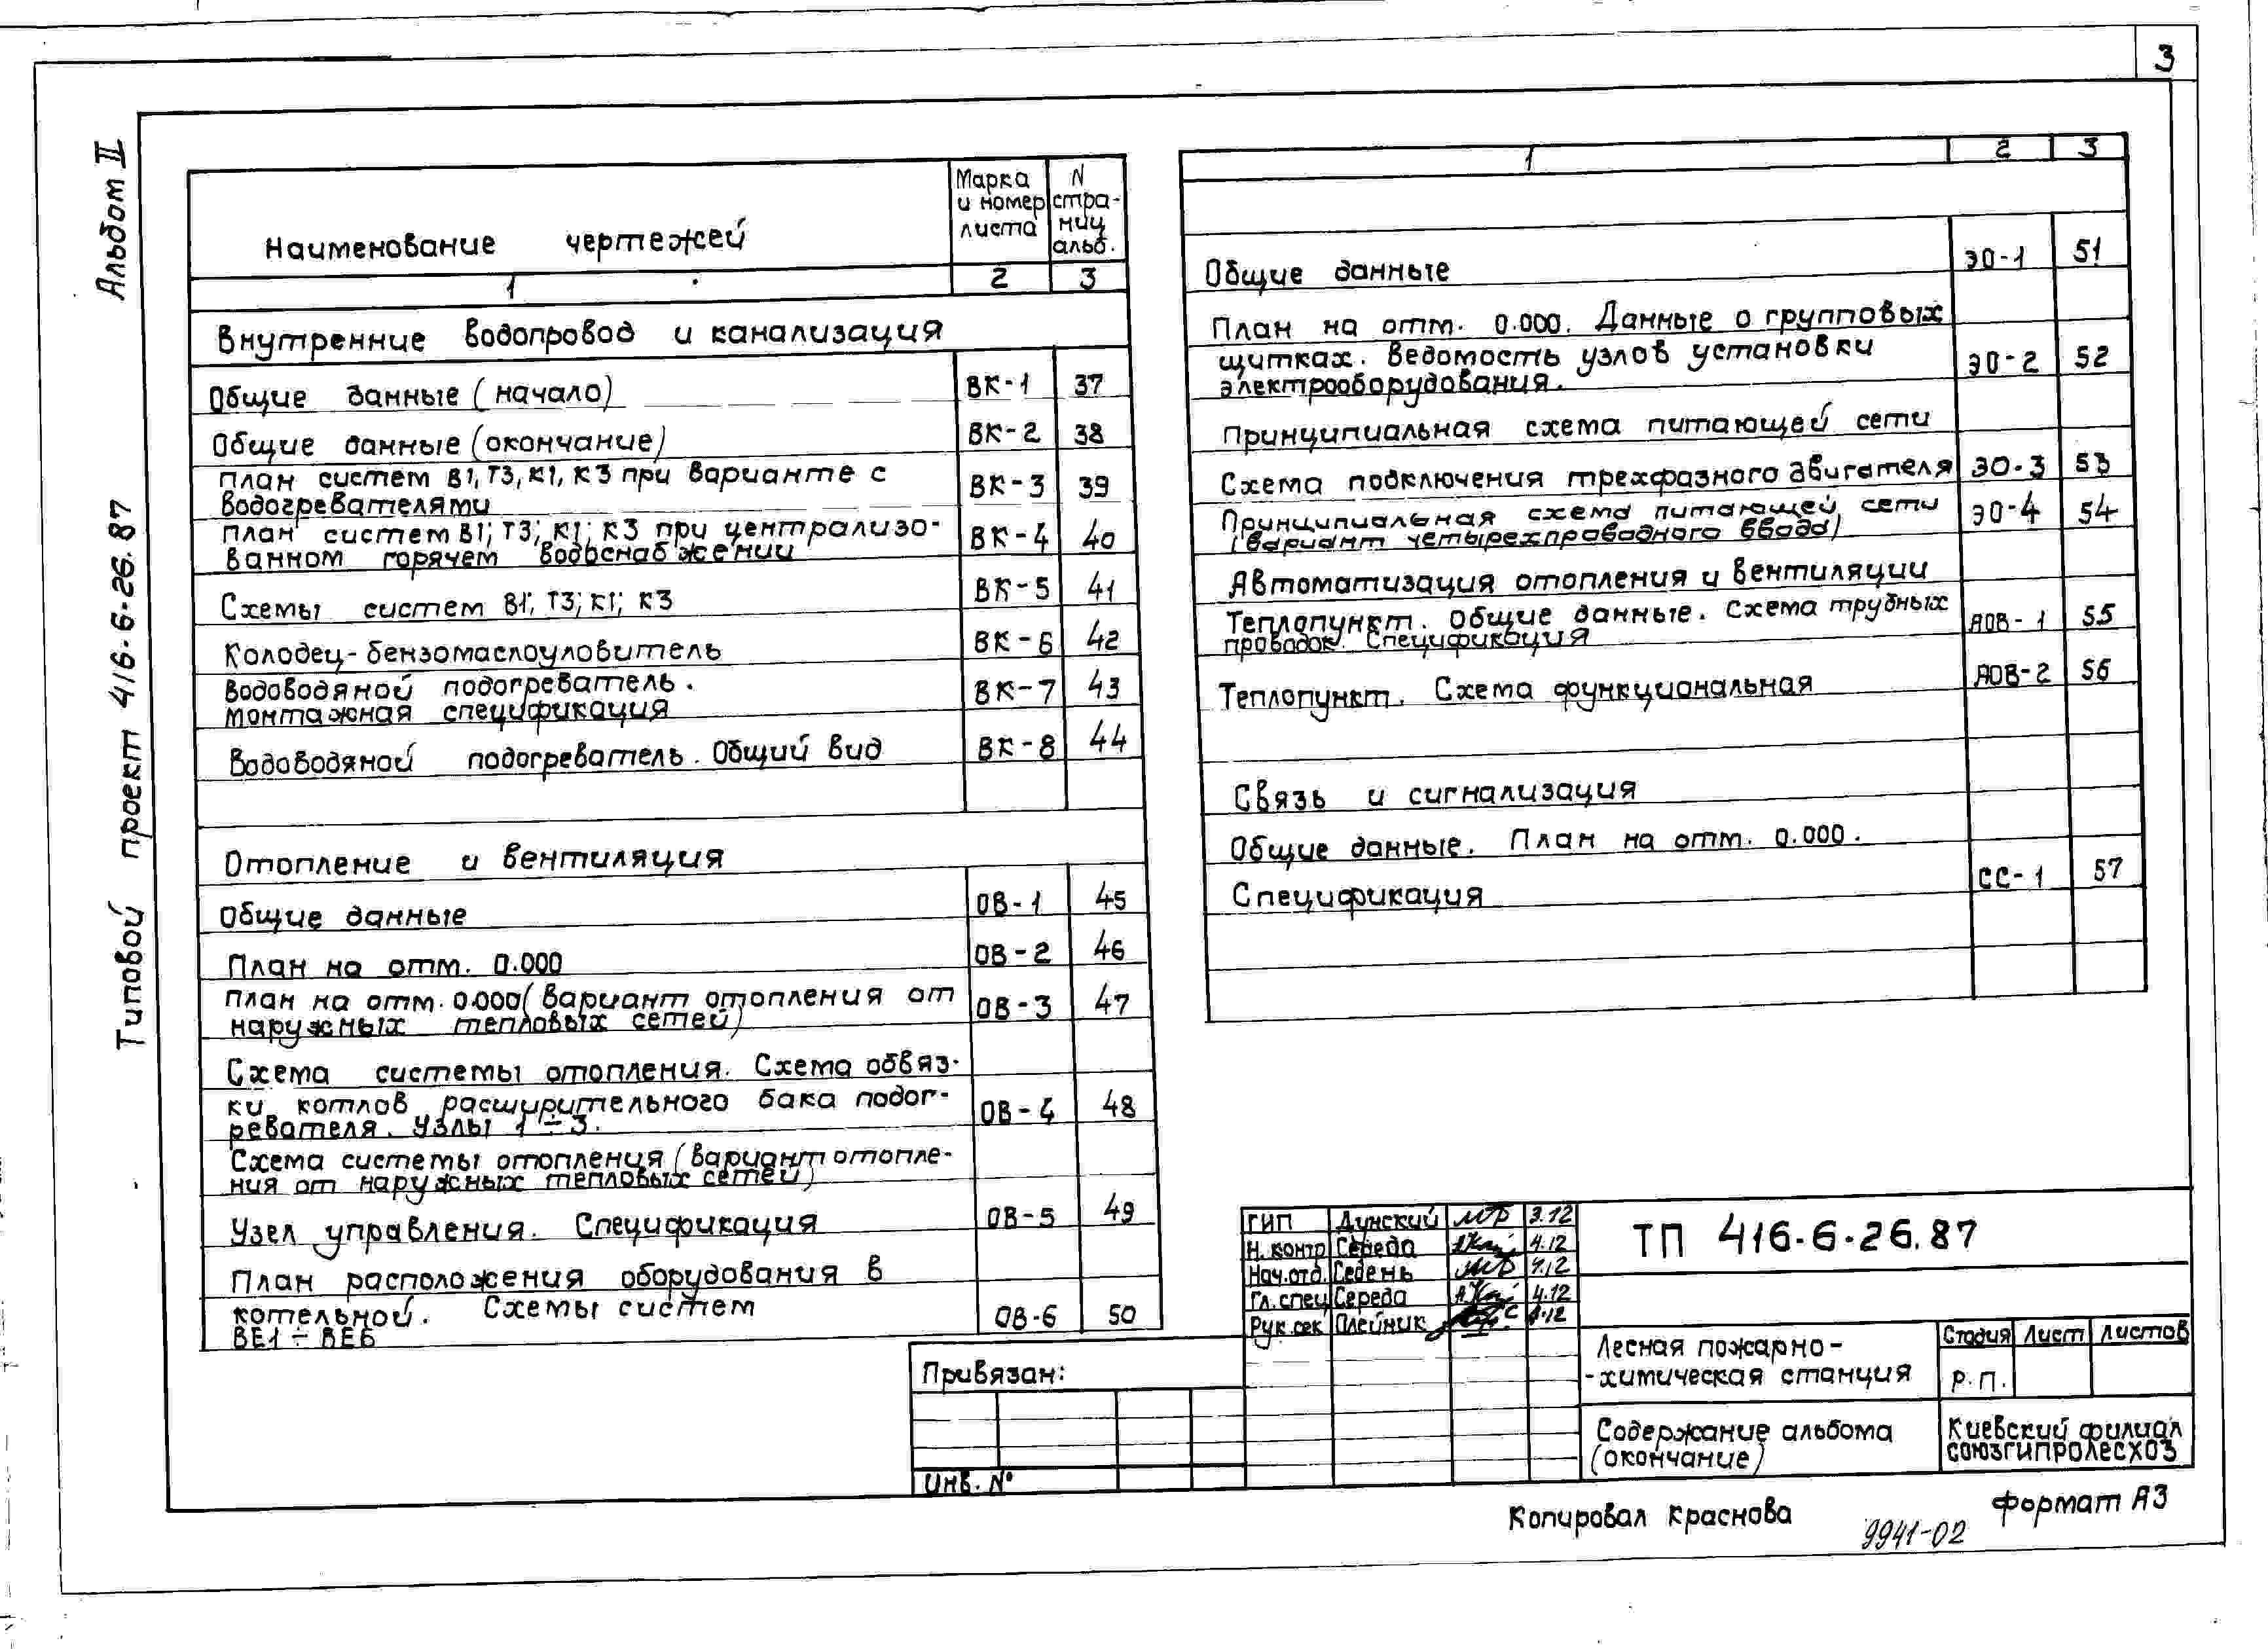 3
Альбом II
Типовой проект 416-6-26.87
Наименование чертежей
Марка и номер листа
N страниц альб.
1 2 3
Внутренние водопровод и канализация
Общие данные (начало) ВК-1 37
Общие данные (окончание) ВК-2 38
План систем В1, Т3, К1, К3 при варианте с
водогревателями ВК-3 39
План систем В1; Т3; К1; К3 при централизо-
ванном горячем водоснабжении ВК-4 40
Схемы систем В1; Т3; К1; К3 ВК-5 41
Колодец-бензомаслоуловитель ВК-6 42
Водоводяной подогреватель.
монтажная спецификация ВК-7 43
Водоводяной подогреватель. Общий вид ВК-8 44
Отопление и вентиляция
Общие данные ОВ-1 45
План на отм. 0.000 ОВ-2 46
План на отм. 0.000 (вариант отопления от
наружных тепловых сетей) ОВ-3 47
Схема системы отопления. Схема обвяз-
ки котлов расширительного бака подог-
ревателя. Узлы 1÷3. ОВ-4 48
Схема системы отопления (вариант отопле-
ния от наружных тепловых сетей)
Узел управления. Спецификация ОВ-5 49
План расположения оборудования в
котельной. Схемы систем
ВЕ1÷ВЕ6 ОВ-6 50
1 2 3
Общие данные ЭО-1 51
План на отм. 0.000. Данные о групповых
щитках. Ведомость узлов установки
электрооборудования. ЭО-2 52
Принципиальная схема питающей сети
Схема подключения трехфазного двигателя ЭО-3 53
Принципиальная схема питающей сети
(вариант четырехпроводного ввода) ЭО-4 54
Автоматизация отопления и вентиляции
Теплопункт. Общие данные. Схема трубных
проводок. Спецификация АОВ-1 55
Теплопункт. Схема функциональная АОВ-2 56
Связь и сигнализация
Общие данные. План на отм. 0.000.
Спецификация СС-1 57
ГИП Дунский 3.12
Н. контр Середа 4.12
Нач. отд. Седень 4.12
Гл. спец Середа 4.12
Рук. сек Олейник 4.12
ТП 416-6-26.87
Лесная пожарно-
-химическая станция
Стадия Лист Листов
Р.П.
Содержание альбома
(окончание)
Киевский филиал
СОЮЗГИПРОЛЕСХОЗ
Привязан:
Инв. N°
Копировал Краснова
9941-02
Формат А3